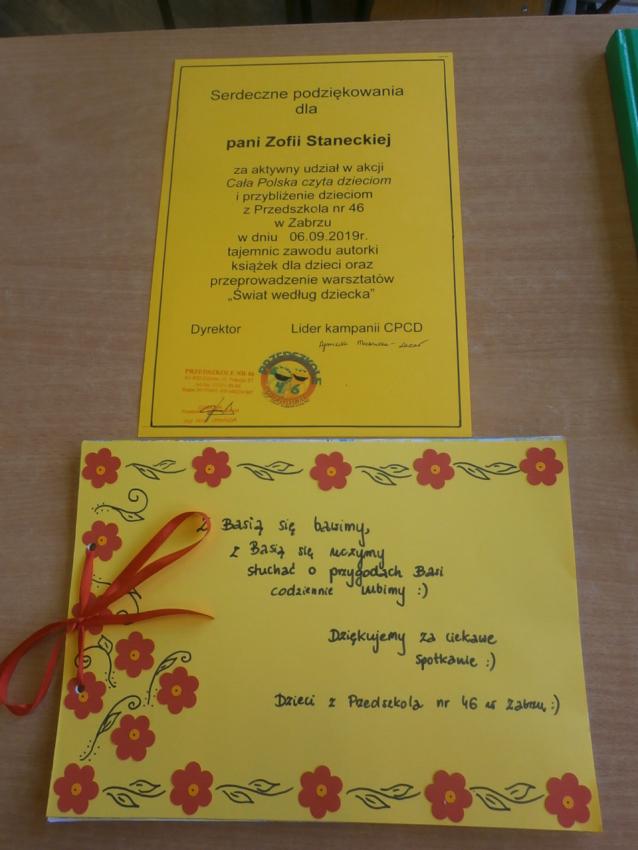 Serdeczne podziękowania
dla
pani Zofii Staneckiej
za aktywny udział w akcji
Cała Polska czyta dzieciom
i przybliżenie dzieciom
z Przedszkola nr 46
w Zabrzu
w dniu 06.09.2019r.
tajemnic zawodu autorki
książek dla dzieci oraz
przeprowadzenie warsztatów
„Świat według dziecka”
Dyrektor Lider kampanii CPCD
PRZEDSZKOLE NR 46
PRZEDSZKOLE
46
Z Basią się bawimy,
z Basią się uczymy
słuchać o przygodach Basi
codziennie lubimy :)
Dziękujemy za ciekawe
spotkanie :)
Dzieci z Przedszkola nr 46 w Zabrzu :)